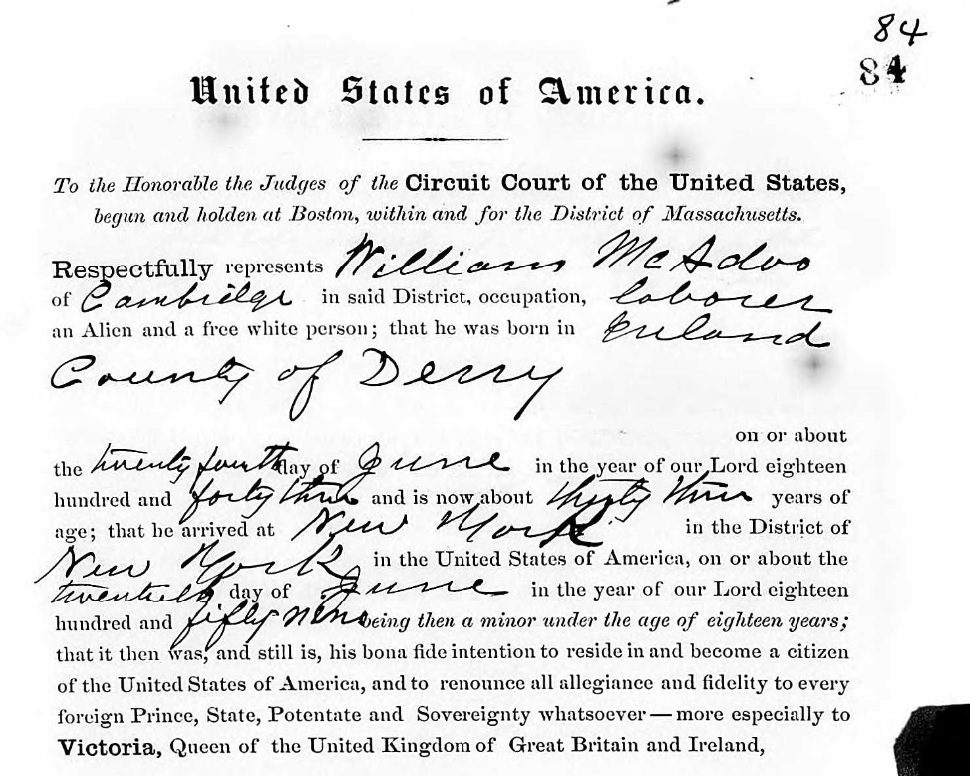 84
84
United States of America.
To the Honorable the Judges of the Circuit Court of the United States,
begun and holden at Boston, within and for the District of Massachusetts.
Respectfully represents William McAdoo
of Cambridge in said District, occupation, laborer
an Alien and a free white person; that he was born in Ireland
County of Derry
on or about
the twenty fourth day of June in the year of our Lord eighteen
hundred and forty three and is now about thirty three years of
age; that he arrived at New York in the District of
New York in the United States of America, on or about the
twentieth day of June in the year of our Lord eighteen
hundred and fifty nine being then a minor under the age of eighteen years;
that it then was, and still is, his bona fide intention to reside in and become a citizen
of the United States of America, and to renounce all allegiance and fidelity to every
foreign Prince, State, Potentate and Sovereignty whatsoever — more especially to
Victoria, Queen of the United Kingdom of Great Britain and Ireland,